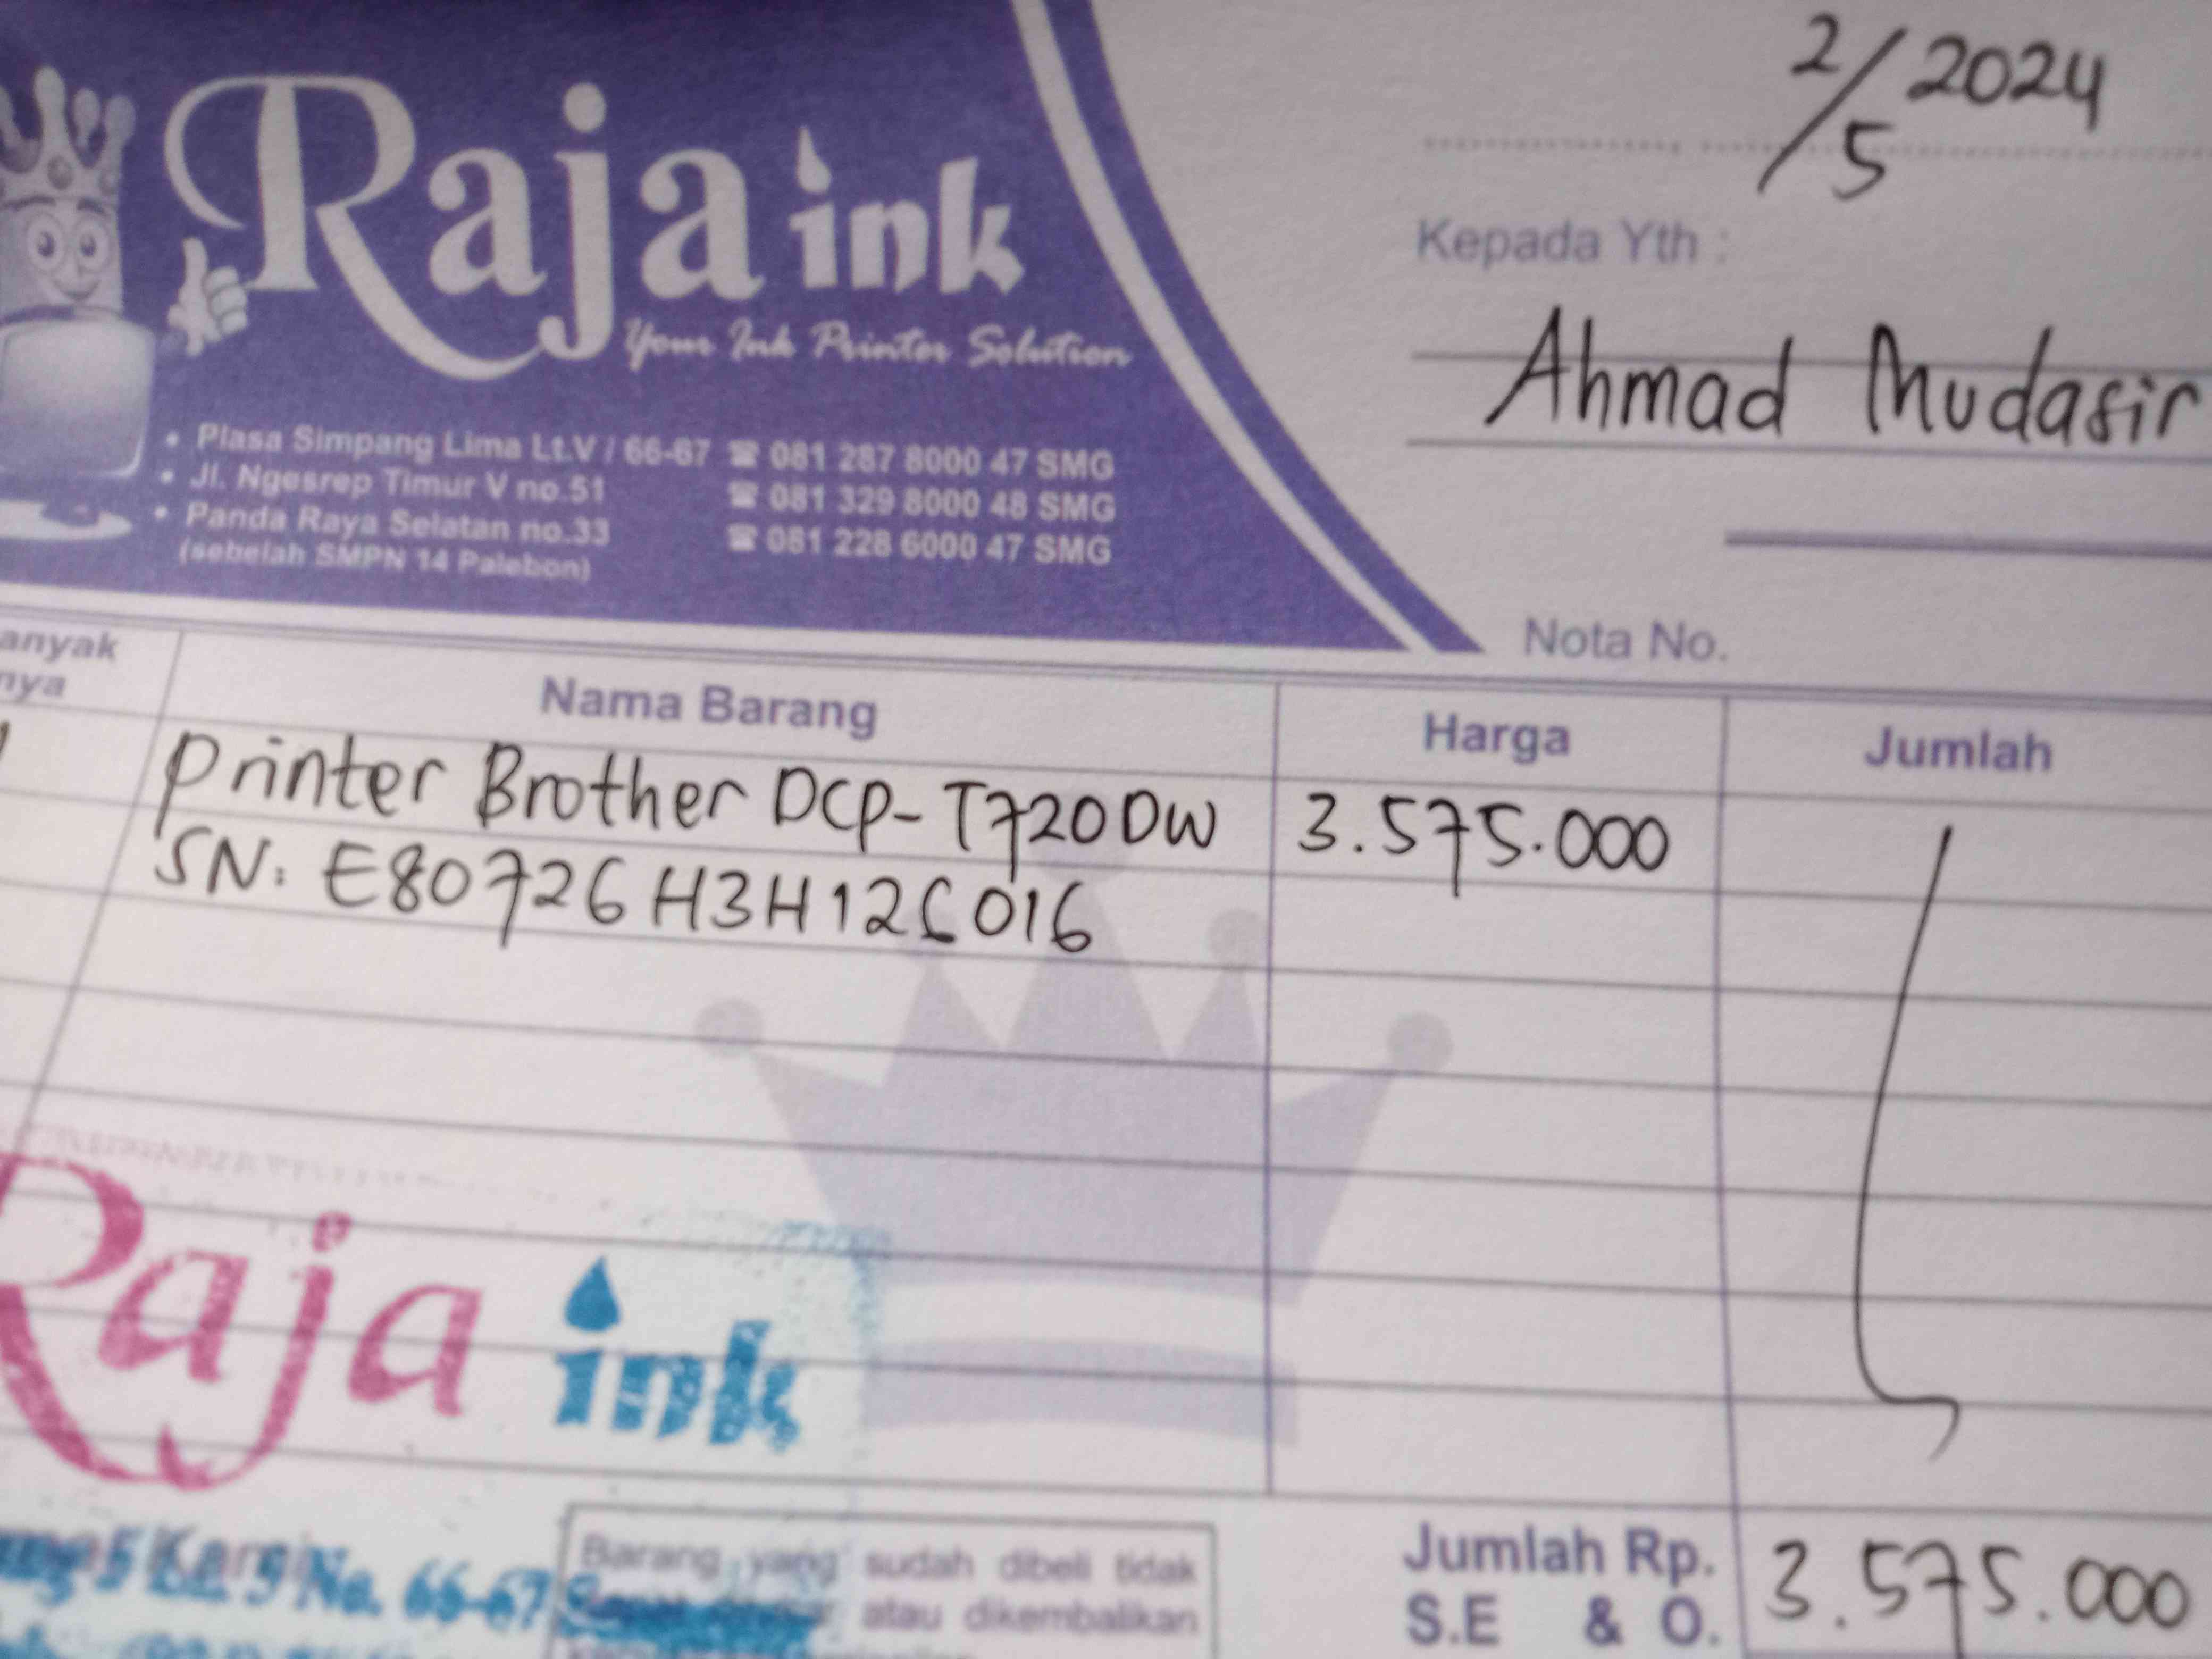 Raja ink
Your Ink Printer Solution
• Plasa Simpang Lima Lt.V / 66-67 ☎ 081 287 8000 47 SMG
• Jl. Ngesrep Timur V no.51 ☎ 081 329 8000 48 SMG
• Panda Raya Selatan no.33 ☎ 081 228 6000 47 SMG
(sebelah SMPN 14 Palebon)
2/5 2024
Kepada Yth :
Ahmad Mudasir
Nota No.
anyak
nya
Nama Barang
Harga
Jumlah
1 Printer Brother DCP-T720DW 3.575.000
SN: E80726H3H126016
Raja ink
No. 66-67
Barang yang sudah dibeli tidak
atau dikembalikan
Jumlah Rp. 3.575.000
S.E & O.